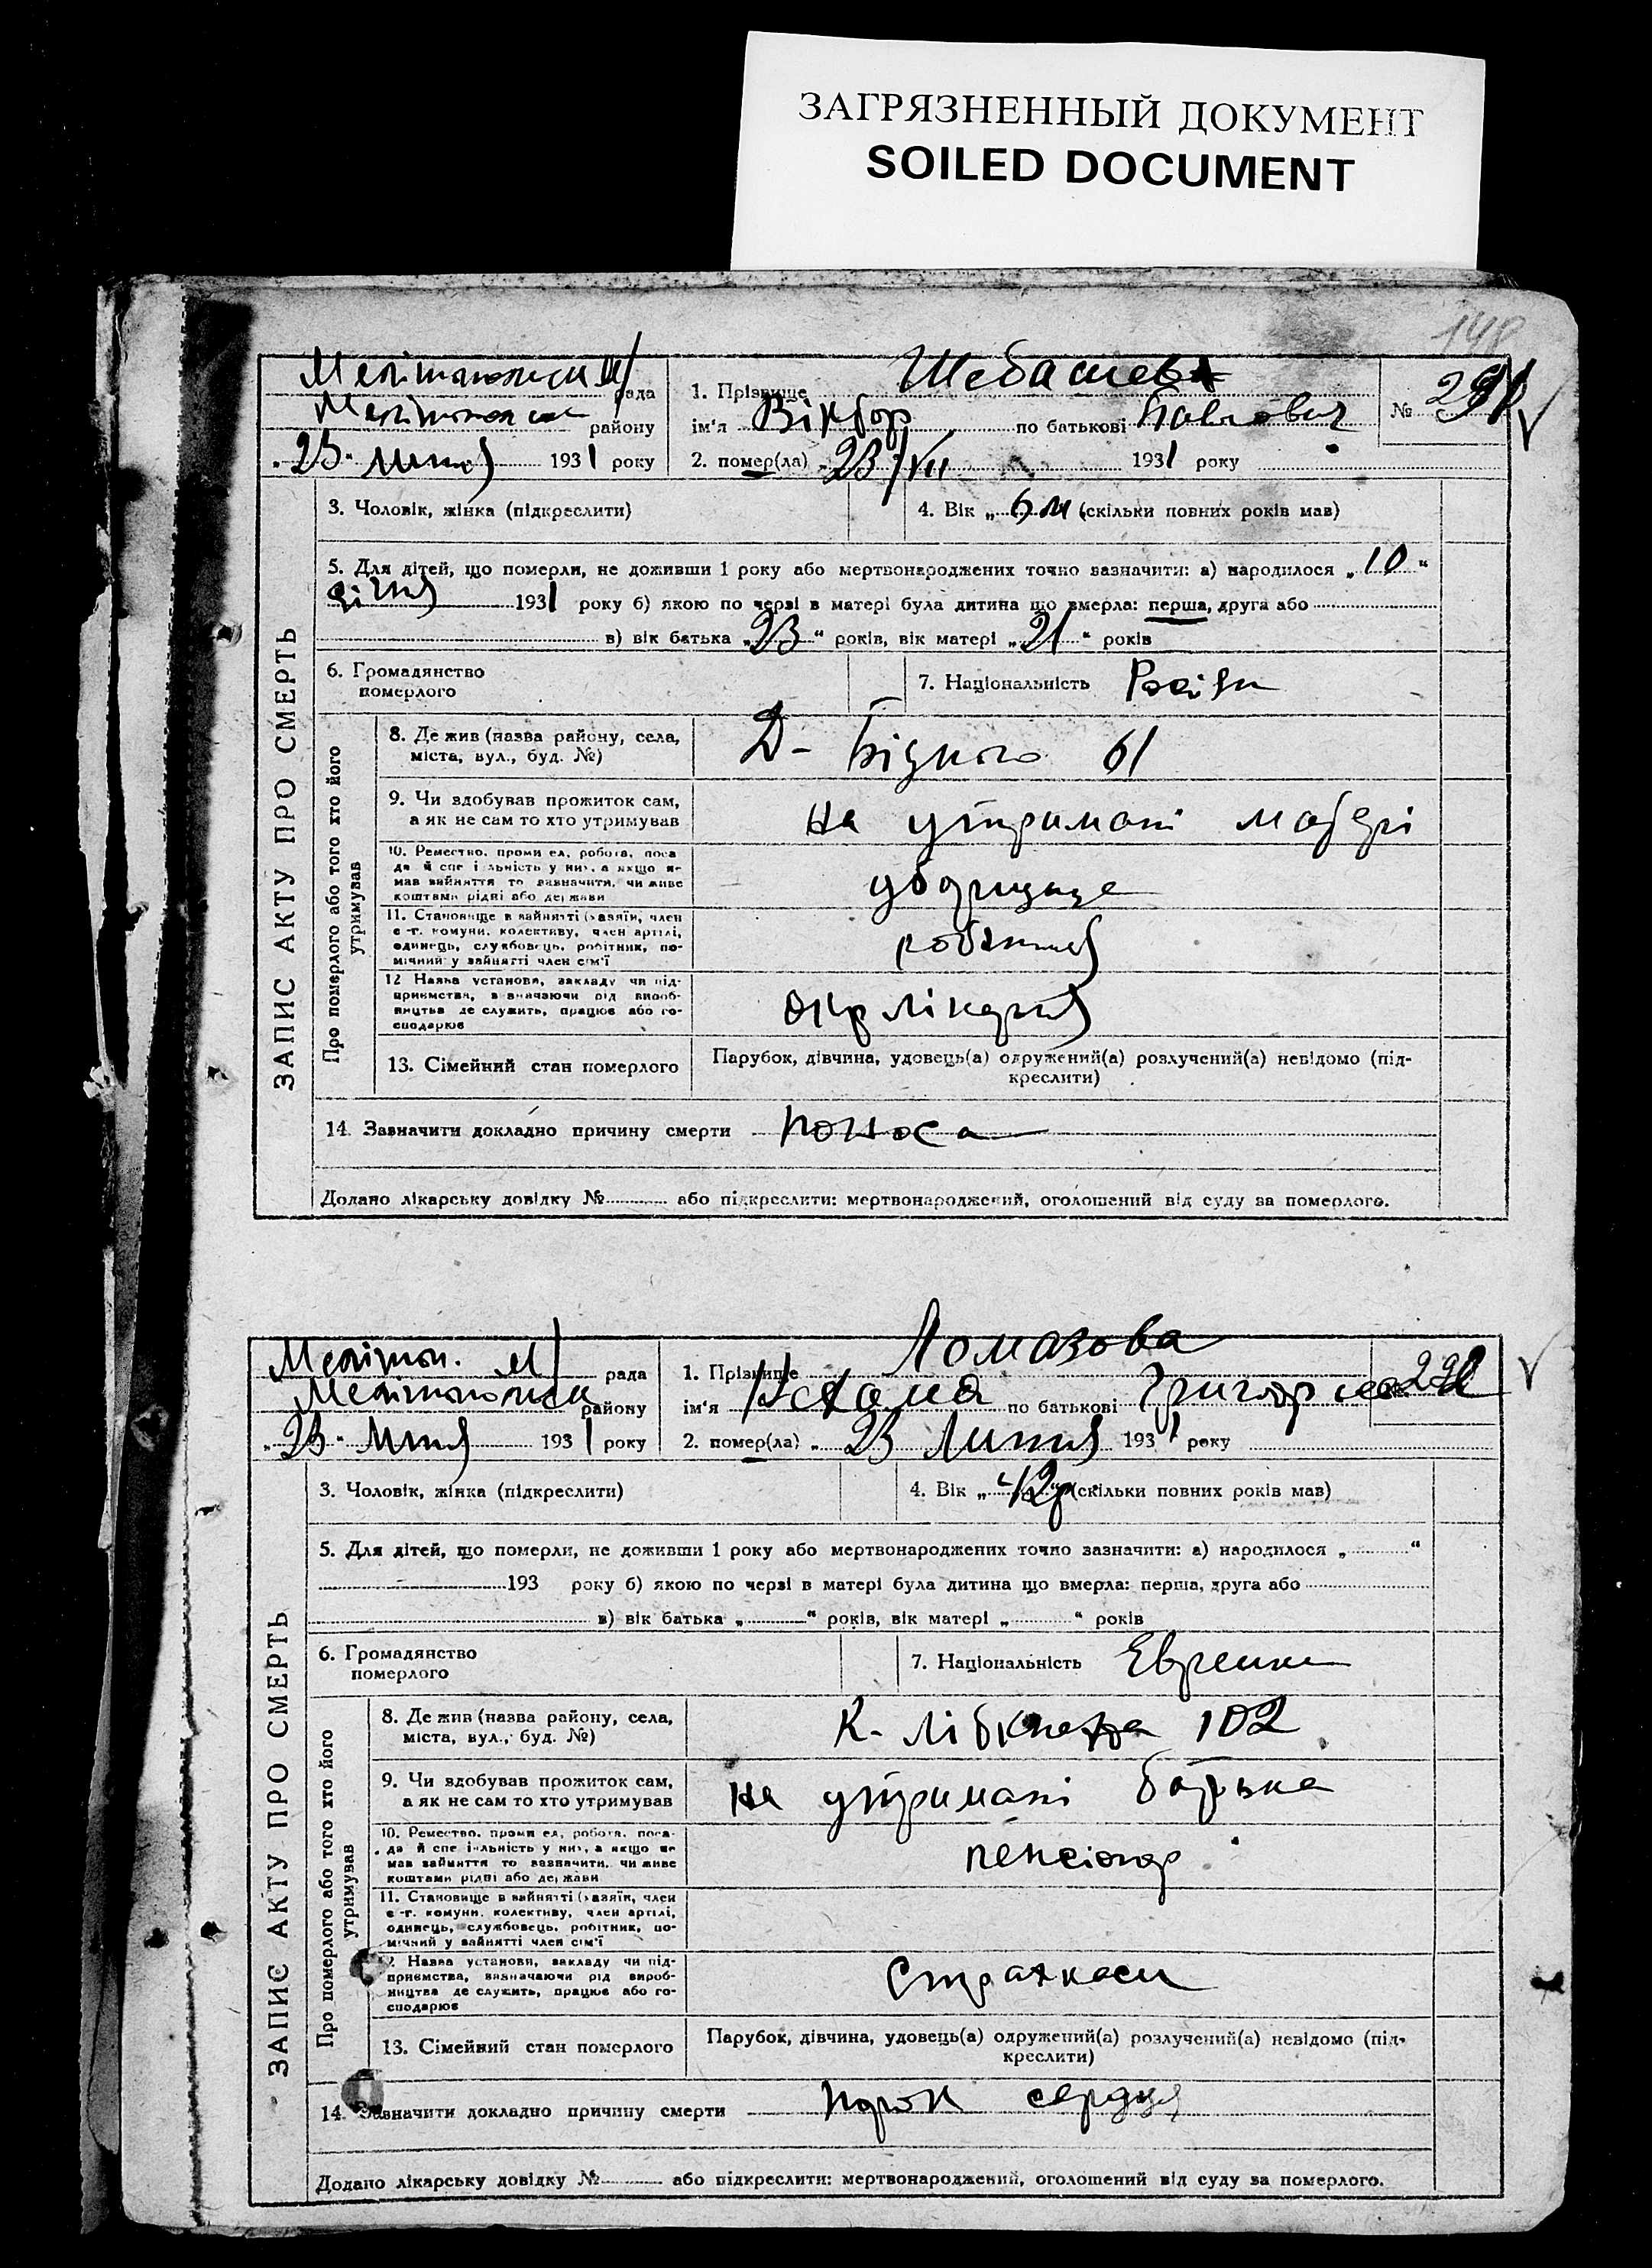 ЗАГРЯЗНЕННЫЙ ДОКУМЕНТ
SOILED DOCUMENT
148
рада
району
"23" липня 1931 року
1. Прізвище Шебашев
ім'я Віктор по батькові Павлович
2. помер(ла) 23/VII 1931 року
№ 291
ЗАПИС АКТУ ПРО СМЕРТЬ
3. Чоловік, жінка (підкреслити)
4. Вік „ 6 м (скільки повних років мав)
5. Для дітей, що померли, не доживши 1 року або мертвонароджених точно зазначити: а) народилося „ 10 "
січня 1931 року б) якою по черзі в матері була дитина що вмерла: перша, друга або
в) вік батька „ 23 " років, вік матері „ 21 " років
6. Громадянство
померлого
7. Національність
Про померлого або того хто його
утримував
8. Де жив (назва району, села,
міста, вул., буд. №)
Д- Бідного 61
9. Чи здобував прожиток сам,
а як не сам то хто утримував
на утримані матері
10. Ремество, промисел, робота, поса
да й спеціяльність у них, а якщо не
мав зайняття то зазначити, чи живе
коштами рідні або держави
уборщице
11. Становище в зайнятті (хазяїн, член
с.-г. комуни, колективу, член артілі,
одинець, службовець, робітник, по-
мічний у зайнятті член сім'ї
12 Назва установи, закладу чи під-
приємства, визначаючи рід вироб-
ництва де служить, працює або го-
сподарює
Окрлікарня
13. Сімейний стан померлого
Парубок, дівчина, удовець(а) одружений(а) розлучений(а) невідомо (під-
креслити)
14. Зазначити докладно причину смерти поноса
Додано лікарську довідку № або підкреслити: мертвонароджений, оголошений від суду за померлого.
Меліт. М рада
району
"23" липня 1931 року
1. Прізвище Ломазова
ім'я по батькові
2. помер(ла) „ 23 липня 1931 року
292
ЗАПИС АКТУ ПРО СМЕРТЬ
3. Чоловік, жінка (підкреслити)
4. Вік „ 42 р (скільки повних років мав)
5. Для дітей, що померли, не доживши 1 року або мертвонароджених точно зазначити: а) народилося „ "
193 року б) якою по черзі в матері була дитина що вмерла: перша, друга або
в) вік батька „ " років, вік матері „ " років
6. Громадянство
померлого
7. Національність Евреика
Про померлого або того хто його
утримував
8. Де жив (назва району, села,
міста, вул., буд. №)
К- Лібкнехта 102
9. Чи здобував прожиток сам,
а як не сам то хто утримував
на утримані батька
10. Ремество, промисел, робота, поса-
да й спеціяльність у них, а якщо не
мав зайняття то зазначити, чи живе
коштами рідні або держави
пенсіонер
11. Становище в зайнятті (хазяїн, член
с.-г. комуни, колективу, член артілі,
одинець, службовець, робітник, по-
мічний у зайнятті член сім'ї
12 Назва установи, закладу чи під-
приємства, визначаючи рід вироб-
ництва де служить, працює або го-
сподарює
Страхкаси
13. Сімейний стан померлого
Парубок, дівчина, удовець(а) одружений(а) розлучений(а) невідомо (під-
креслити)
14. Зазначити докладно причину смерти порок сердця
Додано лікарську довідку № або підкреслити: мертвонароджений, оголошений від суду за померлого.